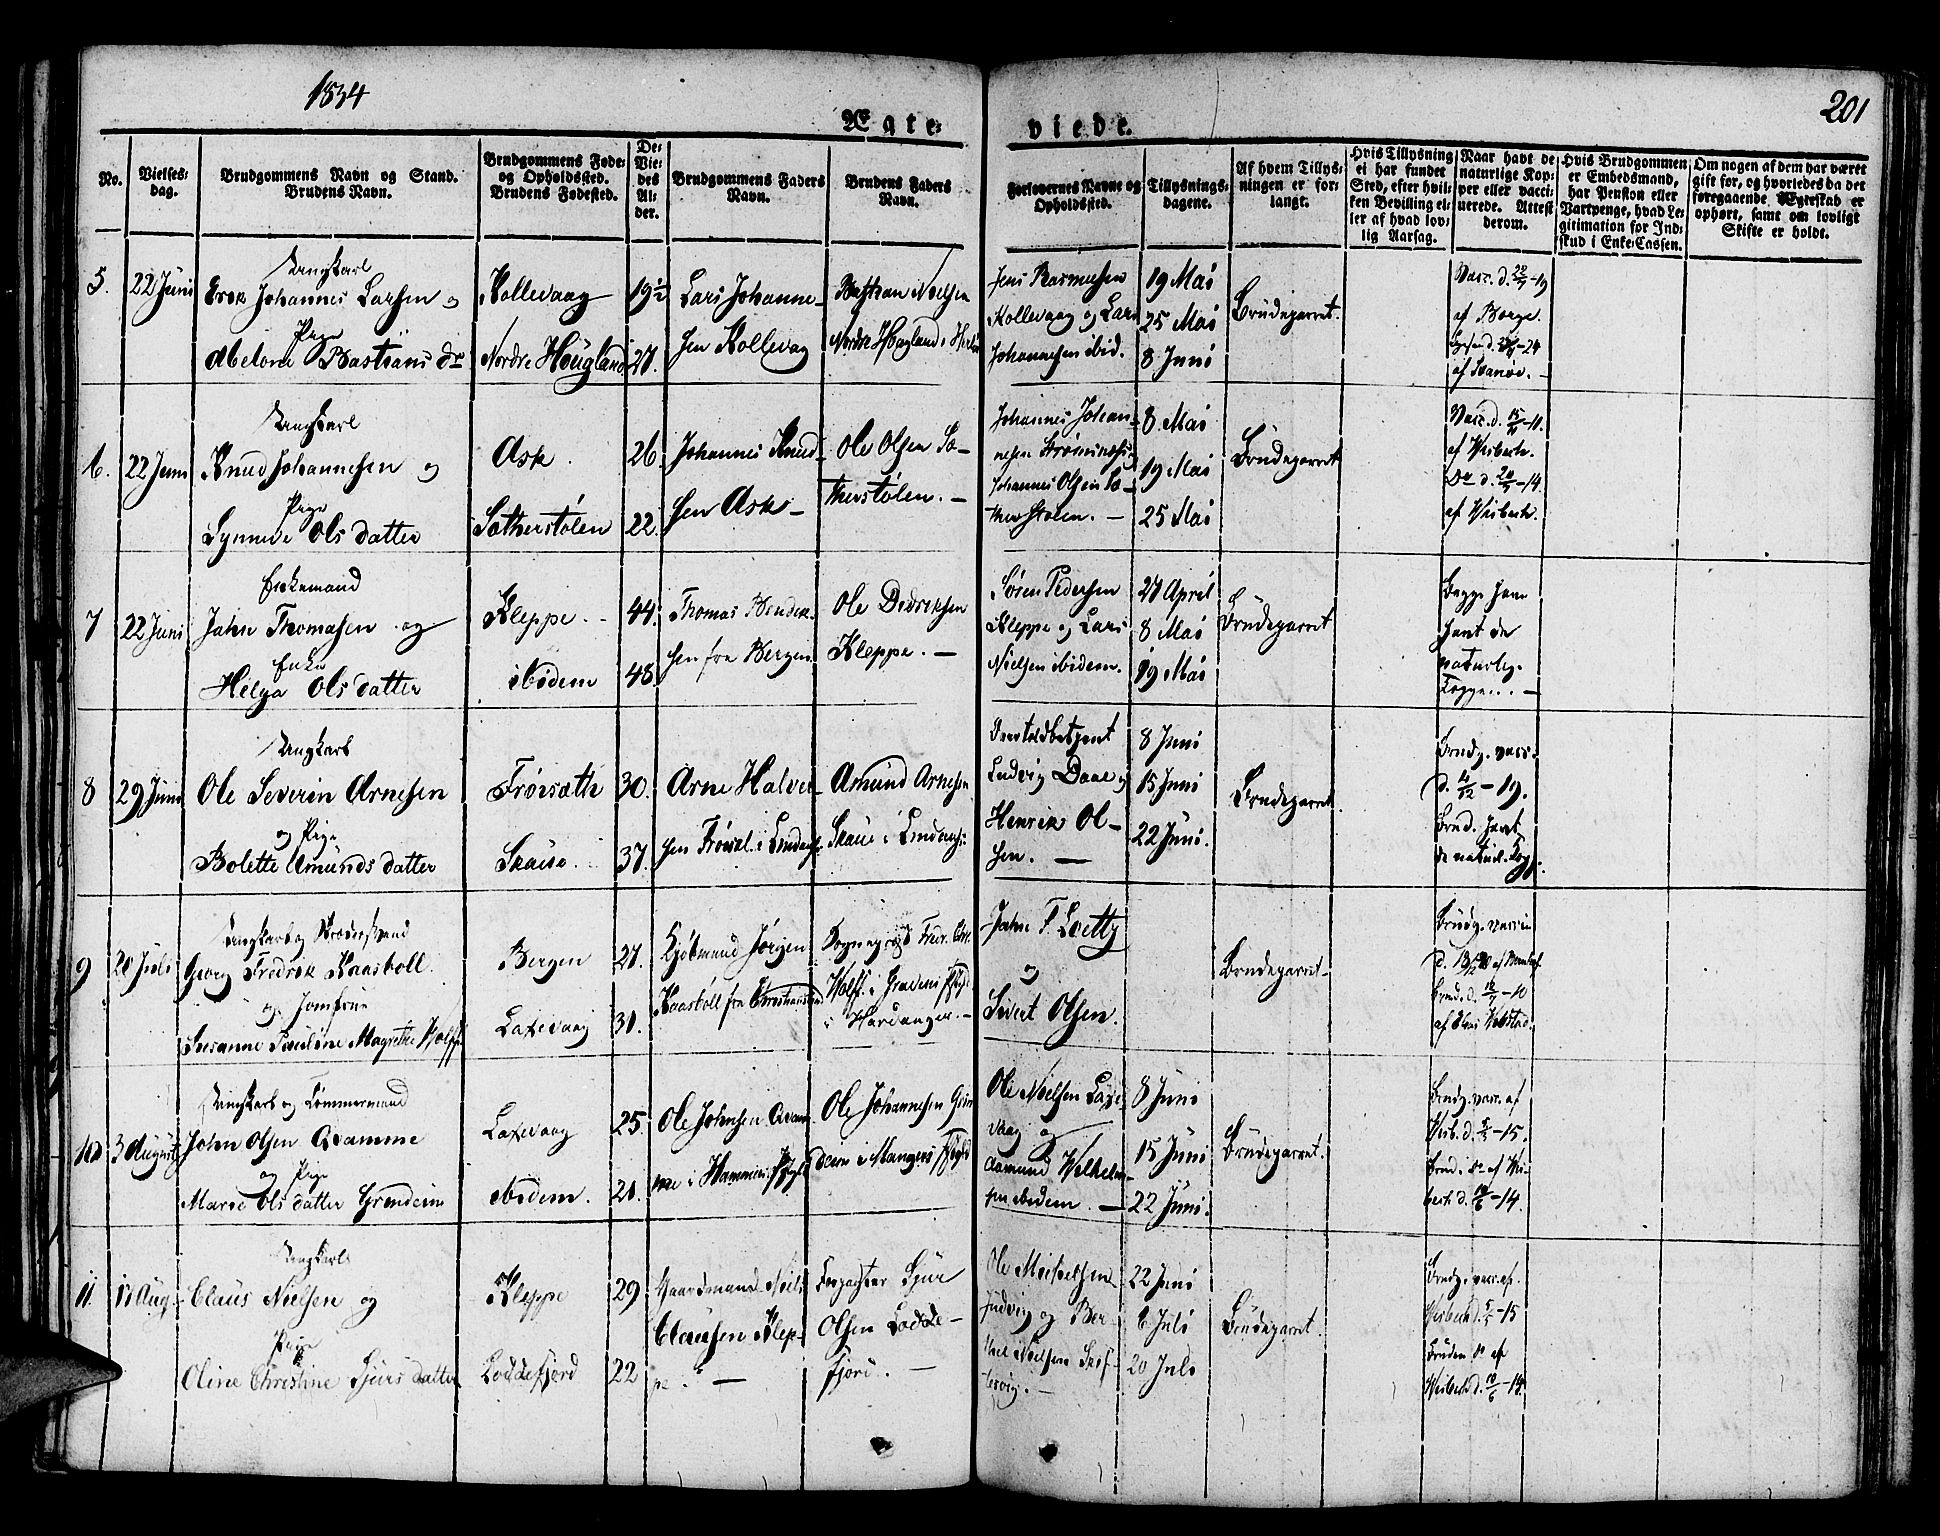 1834
201
Ægte-
viede.
No.
Vielses-
dag.
Brudgommens Navn og Stand.
Brudens Navn.
Brudgommens Føde-
og Opholdssted.
Brudens Fødested.
De
Vie-
des
Al-
der.
Brudgommens Faders
Navn.
Brudens Faders
Navn.
Forlovernes Navne og
Opholdssted.
Tillysnings-
dagene.
Af hvem Tillys-
ningen er for-
langt.
Hvis Tillysning
ei har fundet
Sted, efter hvil-
ken Bevilling el-
ler af hvad lov-
lig Aarsag.
Naar havt de
naturlige Kop-
per eller vacci-
nerede. Attest
derom.
Hvis Brudgommen
er Embedsmand,
har Pension eller
Vartpenge, hvad Le-
gitimation for Ind-
skud i Enke-Cassen.
Om nogen af dem har været
gift før, og hvorledes da det
foregaaende Ægteskab er
ophørt, samt om lovligt
Skifte er holdt.
5. 22 Juni
Ungkarl
Johannes Larsen og
Pige
Abelone Bastians Dr
Kollevaag
Nordre Hougland
19½
27.
Lars Johanne-
sen Kollevag
Bastian Nielsen
Nordre Hougland i Herlø
Jens Rasmussen
Kollevaag og Lars
Johannesen ibid.
19 Mai
25 Mai
8 Juni
Brudeparret.
6. 22 Juni
Ungkarl
Knud Johannesen og
Pige
Synneve Olsdatter
Ask.
Sætherstølen
26
22.
Johannes Knud-
sen Ask -
Ole Olsen Sæ-
therstølen. -
Johannes Johan-
nesen
Johannes Olsen Sæ-
therstølen. -
8 Mai
19 Mai
25 Mai
Brudeparret
7 22 Juni
Enkemand
Jahn Thomasen og
Enke
Helga Olsdatter
Kleppe.
ibidem
44.
48.
Thomas
sen fra Bergen
Ole Didriksen
Kleppe. -
Søren Pedersen
Kleppe og Lars
Nielsen ibidem.
27 April
8 Mai
19 Mai
Brudeparret
Begge have
havt de
naturlig.
Kopper. -
8 29 Juni
Ungkarl
Ole Severin Arnesen
og Pige
Bolette Amundsdatter
Frøisæth
Skaue.
30.
37.
Arne Halvor-
sen Frøiset. i Lindaas.
Amund Arnesen
Skaue i Lindaas.
Overtoldbetjent
Ludvig Daae og
Henrik Ol-
sen. -
8 Juni
15 Juni
22 Juni.
Brudeparret.
Brudg. vacc.
Brud. havt
de naturl. Kop.
9 20 Juli
Ungkarl og
Georg Fredrik Kaasbøll.
og Jomfrue
Susanne Pauline Magrethe Wolff
Bergen
Laxevaag
27.
31.
Kjøbmand Jørgen
Kaasbøll fra Christiansund
Sogneprest Fredr. Chr.
Wolff. i Gravens Pgld
i Hardanger. -
Jahn F. Loetty
og
Sivert Olsen.
Brudeparret.
10 3 August
Ungkarl og Tømmermand
John Olsen Qvamme
og Pige
Marie Olsdatter Grindeim
Laxevaag
ibidem.
25.
21.
Ole Johnsen Qvam-
me i Hammers Pgld
Ole Johannesen Grin-
deim i Mangers Pgld
Ole Nielsen Laxe-
vaag og
Aamund Wilhelm-
sen ibidem. -
8 Juni
15 Juni
22 Juni.
Brudeparret.
11. 17 Aug.
Ungkarl
Claus Nielsen og
Pige
Oline Christine Sjursdatter
Kleppe
Loddefjord
29
22
Gaardmand Niels
Claussen Klep-
pe. -
Forpagter Sjur
Olsen Lodde-
fjord. -
Ole Michelsen
og Ber-
Nielsen
22 Juni
6 Juli
20 Juli
Brudeparret.